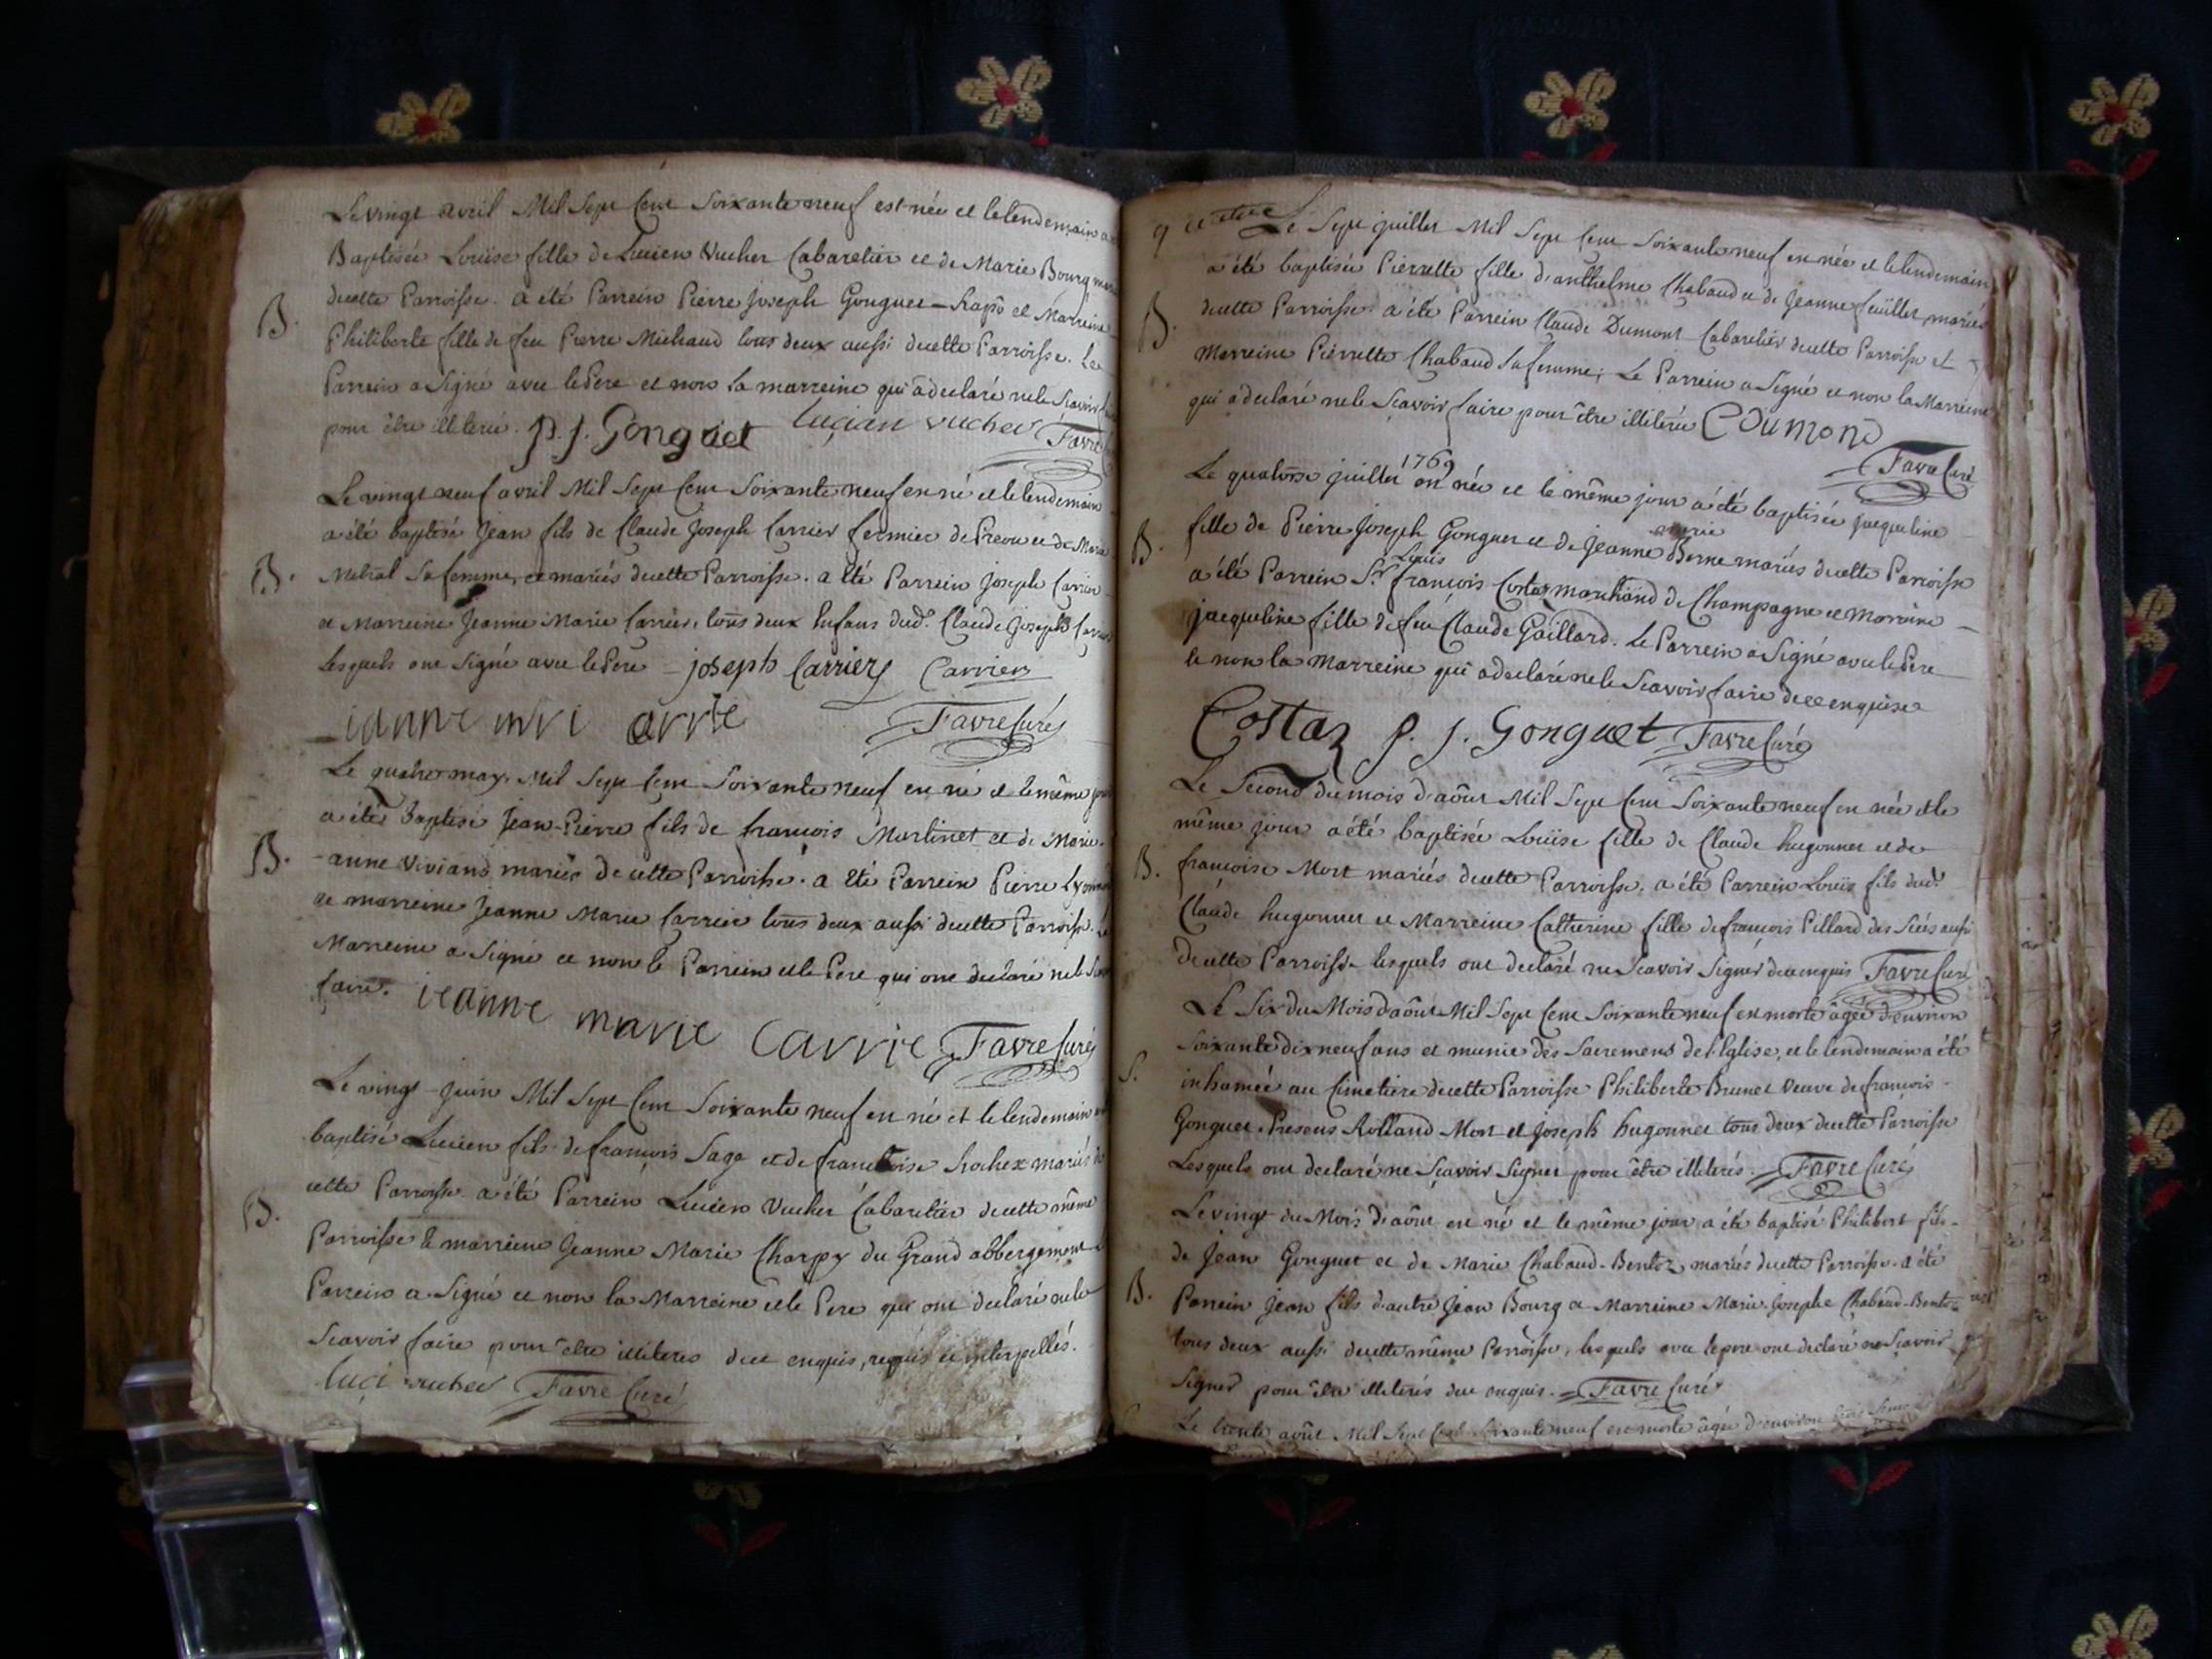 Le vingt avril Mil Sept Cent Soixante neuf est née et le lendemain a
Baptisée Louïse fille de Lucien Vucher Cabaretier et de Marie Bourg
B.
decette Parroisse. a été Parrein Pierre Joseph Gonguet et Marreine
Philiberte fille de feu Pierre Michaud tous deux aussi decette Parroisse. Le
Parrein a Signé avec le Pere et non la marreine qui a declaré ne le Scavoir
pour être illiteree. p. j. Gonguet lucian vucher Favre
Le vingt neuf avril Mil Sept Cent Soixante neuf en né et le lendemain
a été baptisé Jean fils de Claude Joseph Carrier fermier de et de Marie
B.
Metral Sa femme, et mariés decette Parroisse. a été Parrein joseph Carrier
et Marreine Jeanne Marie Carrier, tous deux Enfans dud. Claude Joseph
Lesquels ont Signé avec le Pere joseph Carrier Carrier
ianne mri arrie Favre Curé
Le quatre may, Mil Sept Cent Soixante neuf en né et le même
a été Baptisé Jean-Pierre fils de françois Martinet et de Marie
B.
-anne Viviand mariés de cette Parroisse. a été Parrein Pierre
et marreine Jeanne Marie Carrier tous deux aussi decette Parroisse.
Marreine a Signé et non le Parrein et le Pere qui ont declaré ne le
faire. ieanne marie Carrie Favre Curé
Le vingt juin Mil Sept Cent Soixante neuf en né et le lendemain
baptisé Lucien fils de françois Sage et de francoise Rochex mariés
B.
cette Parroisse a été Parrein Lucien Vucher Cabaretier decette même
Parroisse & marreine Jeanne Marie Charpy du Grand abbergement
Parrein a Signé et non la Marreine et le Pere qui ont declaré ne le
Scavoir faire pour être illiteres dece enquis, requis et interpellés.
luci vucher Favre Curé
Le Sept juillet Mil Sept Cent Soixante neuf en née et le lendemain
a été baptisée Pierrette fille d'anthelme Chabaud et de Jeanne feüillet mariés
B.
decette Parroisse. a été Parrein Claude Dumont Cabaretier decette Parroisse et
Marreine Pierrette Chabaud Sa femme; Le Parrein a Signé et non la Marreine
qui a declaré ne le Scavoir faire pour être illiterée C Dumond
Favre Curé
Le quatorse juillet 1769 en née et le même jour a été baptisée jacqueline
marie
B.
fille de Pierre Joseph Gonguet et de Jeanne Berne mariés decette Parroisse
Louis
a été Parrein Sr. françois Costaz marchand de Champagne et marreine
jacqueline fille de feu Claude Gaillard. Le Parrein a Signé avec le Pere
et non la Marreine qui a declaré ne le Scavoir faire de ce enquise
Costaz p. j. Gonguet Favre Curé
Le Second du mois d'aôut Mil Sept Cent Soixante neuf en née et le
même jour a été baptisée Louïse fille de Claude hugonnet et de
B.
francoise Mort mariés decette Parroisse. a été Parrein Louïs fils dud.
Claude hugonnet et Marreine Catherine fille de francois Pillard des Siés aussi
decette Parroisse lesquels ont declaré ne Scavoir Signer dece enquis Favre Curé
Le Six du Mois d'aôut Mil Sept Cent Soixante neuf en morte âgée d'environ
Soixante dix neuf ans et munie des Sacremens de l'Eglise, et le lendemain a été
S.
inhumée au Cimetiere decette Parroisse Philiberte Brunet veuve de francois
Gonguet. Presens Rolland Mort et Joseph hugonnet tous deux decette Parroisse
Lesquels ont declaré ne Scavoir Signer pour être illiterés. Favre Curé
Le vingt du Mois d'aôut en né et le même jour a été baptisé Philibert fils
de Jean Gonguet et de Marie Chabaud-Bentoz mariés decette Parroisse. a été
B.
Parrein jean fils d'autre Jean Bourg et Marreine Marie-Josephe Chabaud-Bentoz
tous deux aussi decette même Parroisse, lesquels avec le pere ont declaré ne Scavoir
Signer pour être illiterés dece enquis. Favre Curé
Le trente août Mil Sept Cent Soixante neuf en morte âgée d'environ